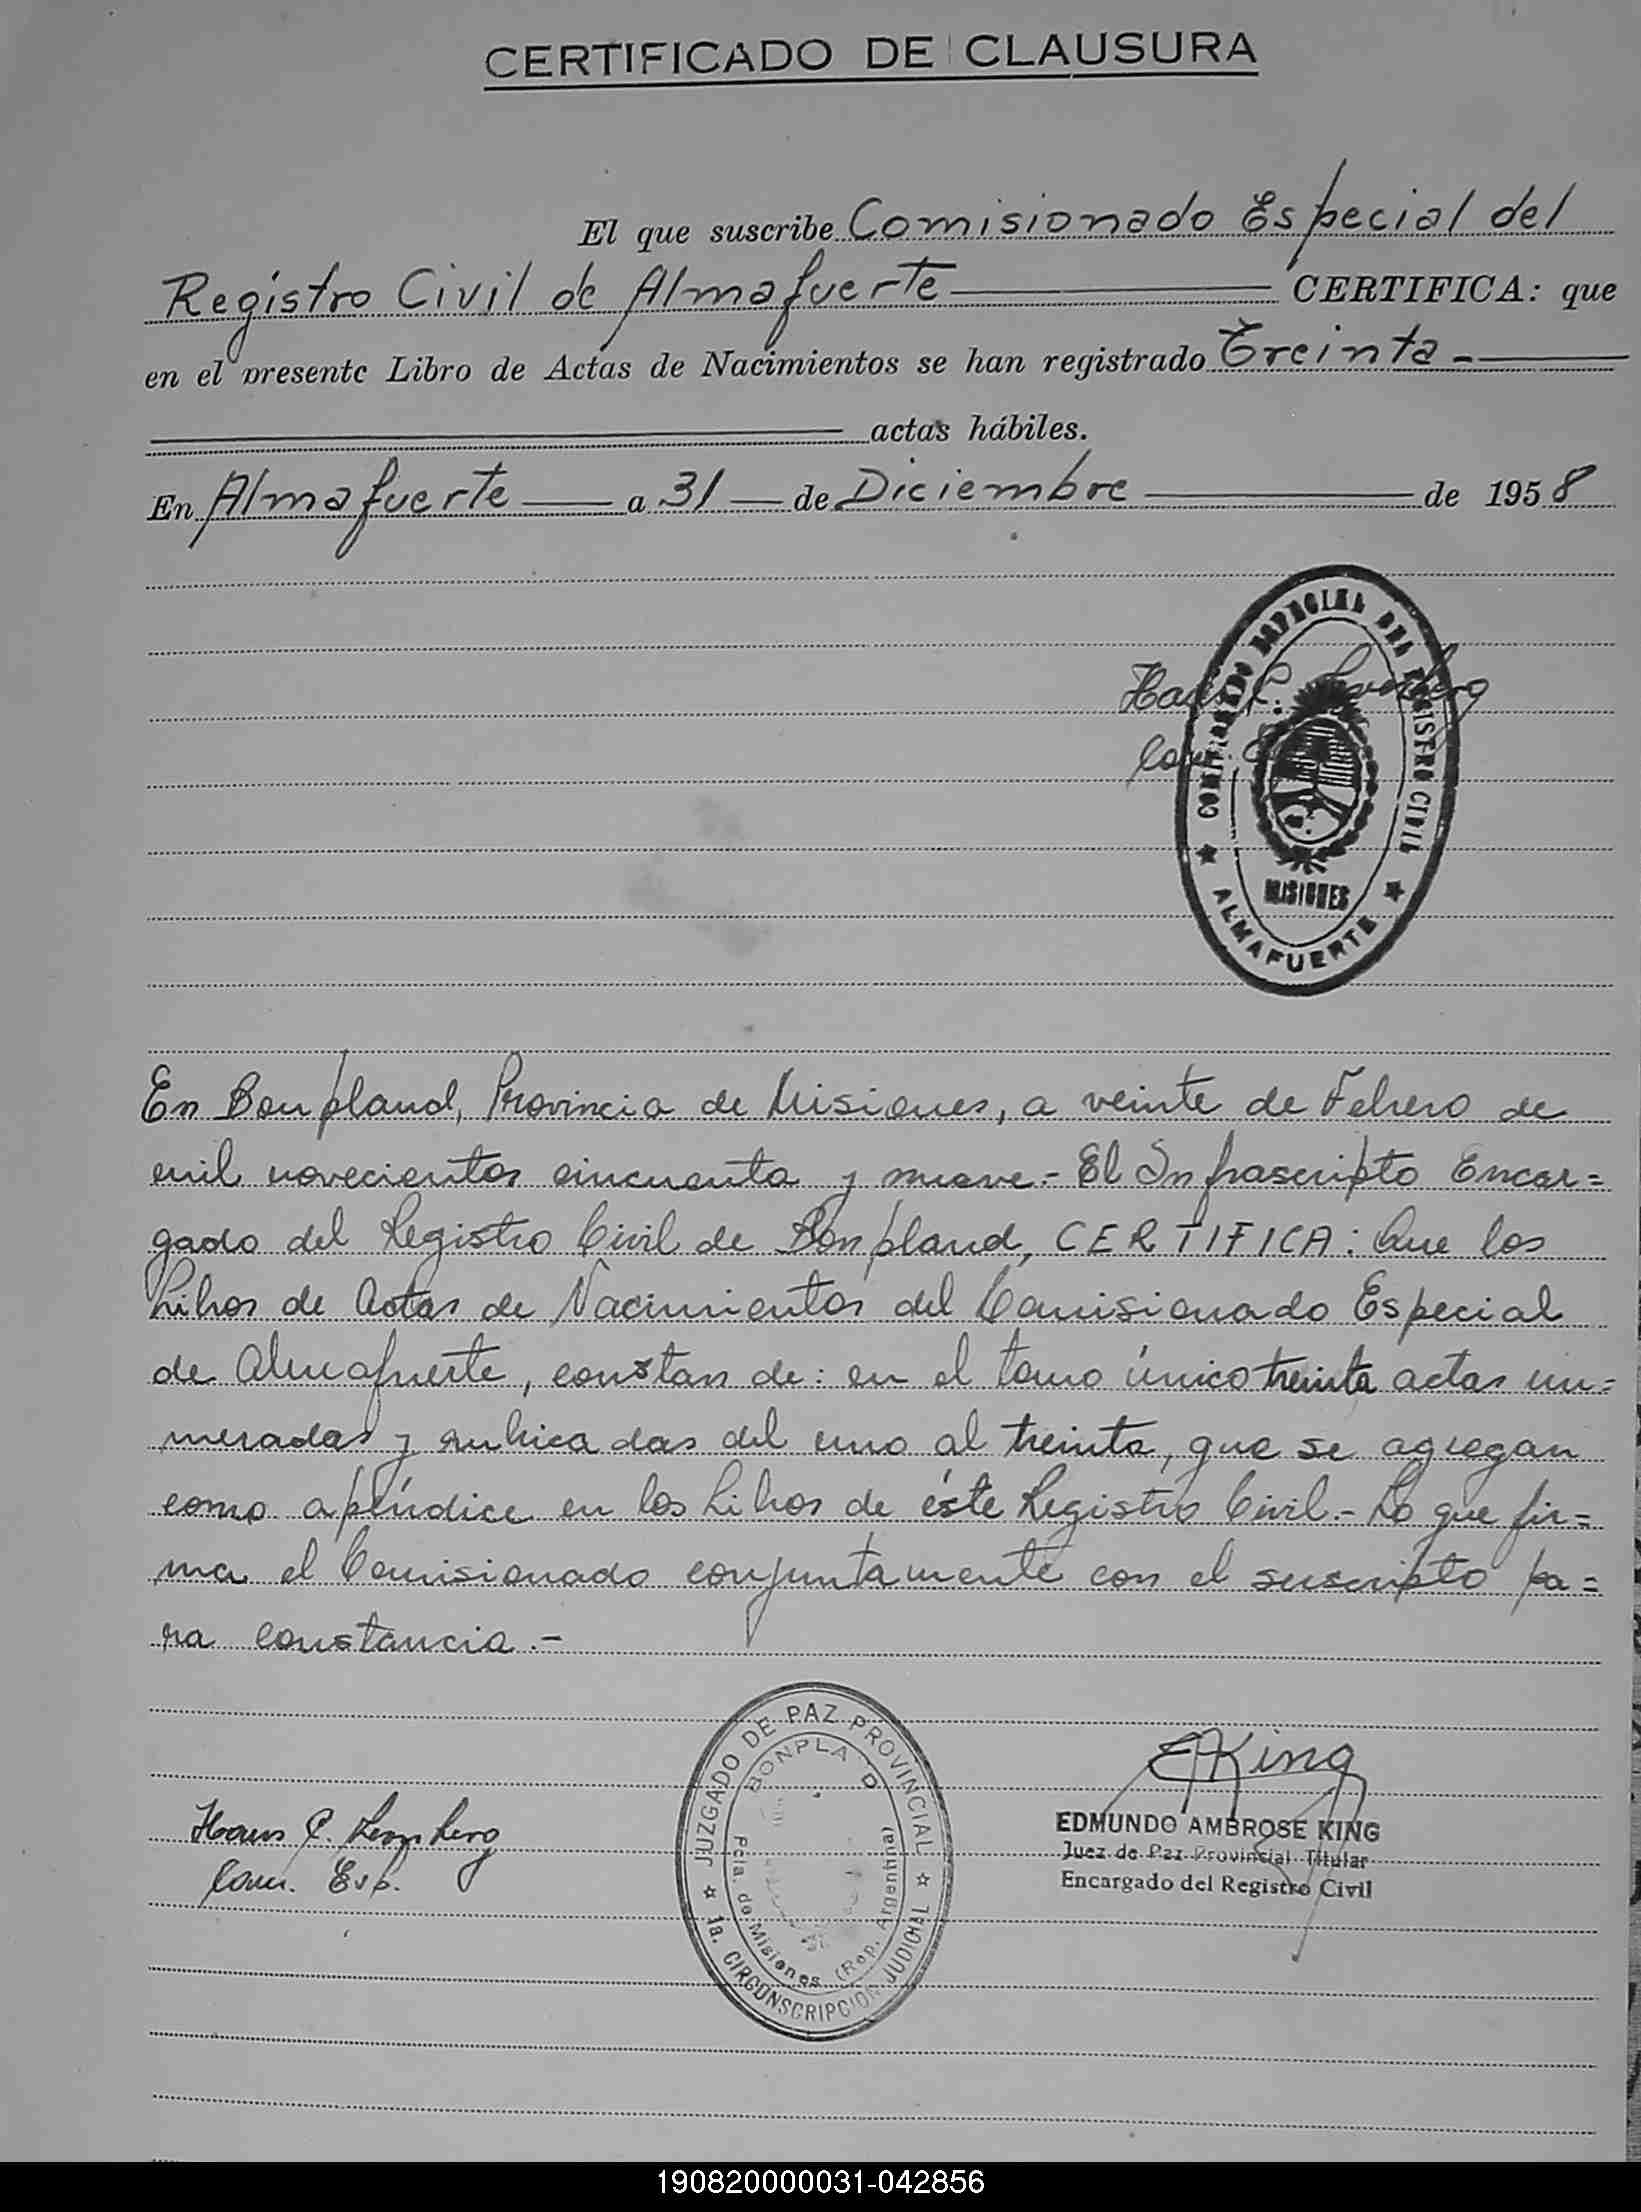 CERTIFICADO DE CLAUSURA
El que suscribe Comisionado Especial del
Registro Civil de Almafuerte CERTIFICA: que
en el presente Libro de Actas de Nacimientos se han registrado Treinta.-
actas hábiles.
En Almafuerte a 31 de Diciembre de 1958
COMISIONADO ESPECIAL DEL REGISTRO CIVIL
MISIONES
★ ALMAFUERTE ★
En Bonpland, Provincia de Misiones, a veinte de Febrero de
mil novecientos cincuenta y nueve.- El Infrascripto Encar=
gado del Registro Civil de Bonpland, CERTIFICA: Que los
Libros de Actas de Nacimientos del Comisionado Especial
de Almafuerte, constan de: en el tomo único treinta actas nu=
meradas y rubricadas del uno al treinta, que se agregan
como apéndice en los Libros de éste Registro Civil.- Lo que fir=
ma el Comisionado conjuntamente con el suscripto pa=
ra constancia.-
JUZGADO DE PAZ PROVINCIAL
BONPLA D
Pcia. de Misiones (Rep. Argentina)
★ 1a. CIRCUNSCRIPCION JUDICIAL ★
EKing
EDMUNDO AMBROSE KING
Juez de Paz Provincial Titular
Encargado del Registro Civil
Hans
Com. Esp.
190820000031-042856